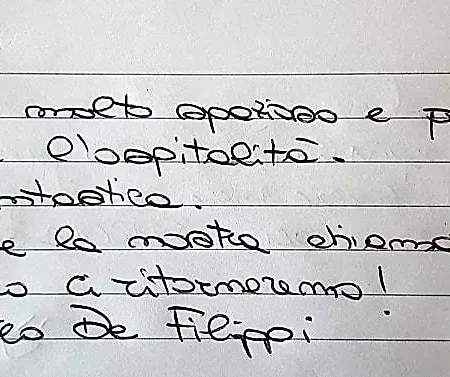 molto spazioso e p
l'ospitalità.
ntastica.
e la nostra chiama
o ci ritorneremo!
eo De Filippi